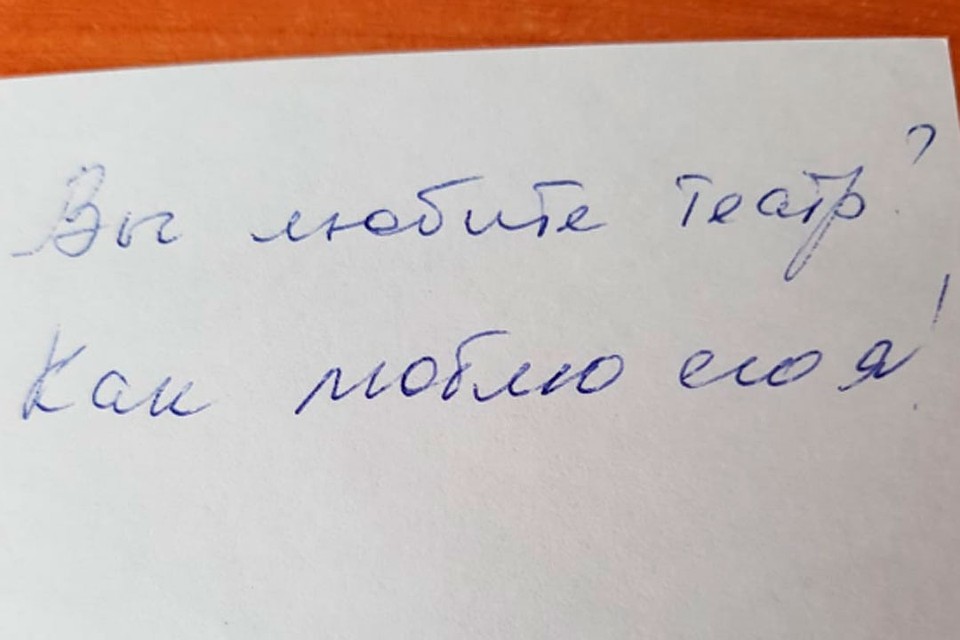 Вы любите театр?
Как люблю его я!